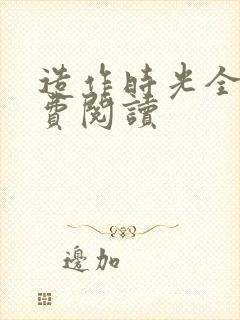 造作時光全
費閱讀
邊加